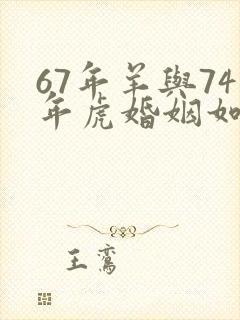 67年羊與74
年虎婚姻如
王鸞